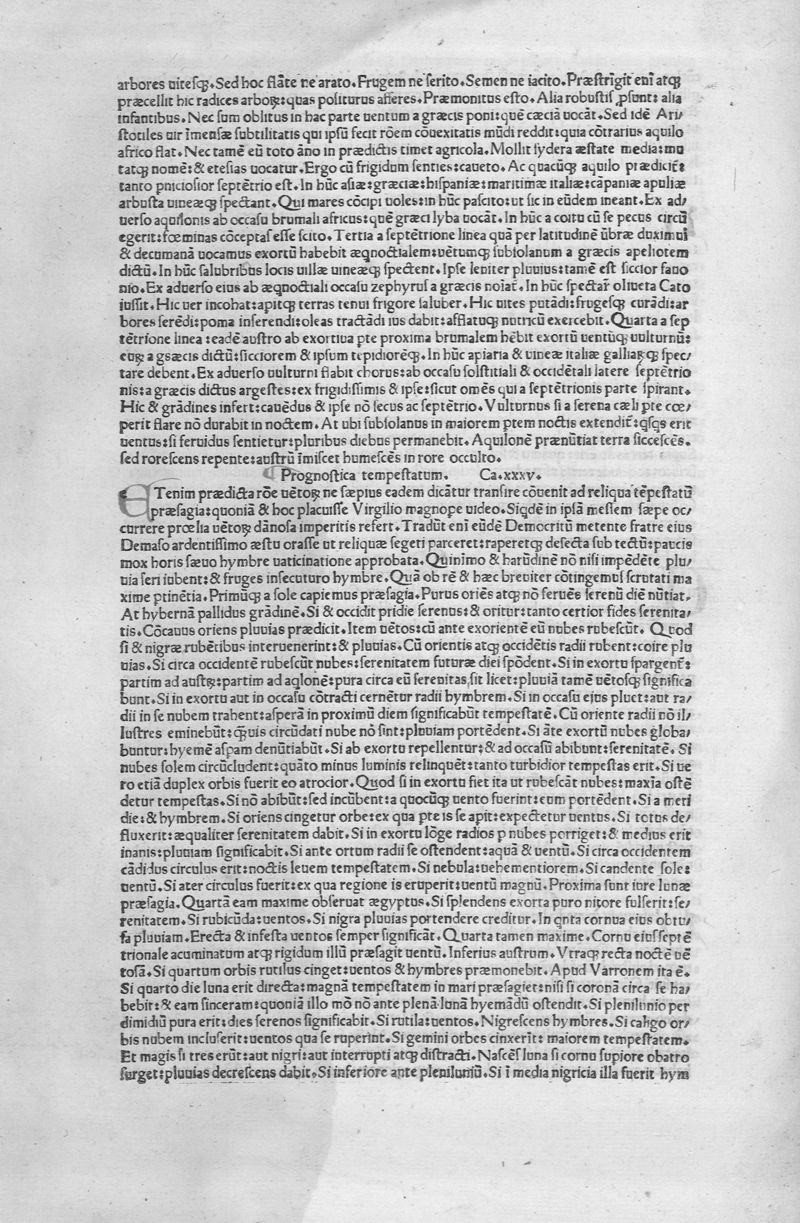 arbores uitesq̃. Sed hoc flãte ne arato. Frugem ne serito. Semen ne iacito. Præstrĩgit enĩ atq̃
præcellit hic radices arboꝝ: quas positurus afferes. Præmonitus esto. Alia robustis ꝓsunt: alia
infantibus. Nec sum oblitus in hac parte uentum a græcis poni: quẽ cæciã uocãt. Sed idẽ Ari/
stotiles uir ĩmensæ subtilitatis qui ipsũ fecit rõem cõuexitatis mũdi reddit: quia cõtrarius aquilo
africo flat. Nec tamẽ eũ toto ãno in prædictis timet agricola. Mollit sydera æstate media: mu
tatq̃ nomẽ: & etesias uocatur. Ergo cũ frigidum senties: caueto. Ac quacũq̃ aquilo prædicit̃:
tanto pniciosior septẽtrio est. In hũc asiæ: græciæ: hispaniæ: maritimæ italiæ: cãpaniæ apuliæ
arbusta uineæq̃ spectant. Qui mares cõcipi uoles: in hũc pascito: ut sic in eũdem ineant. Ex ad/
uerso aquilonis ab occasu brumali africus: quẽ græci lyba uocãt. In hũc a coitu cũ se pecus circũ
egerit: fœminas cõceptas esse scito. Tertia a septẽtrione linea quã per latitudinẽ ũbræ duximus
& decumanã uocamus exortũ habebit æqnoctialem: uẽtumq̃ subsolanum a græcis apeliotem
dictũ. In hũc salubribus locis uillæ uineæq̃ spectent. Ipse leniter pluuius: tamẽ est siccior fauo
nio. Ex aduerso eius ab æqnoctiali occasu zephyrus a græcis noiat̃. In hũc spectar̃ oliueta Cato
iussit. Hic uer incohat: apitq̃ terras tenui frigore saluber. Hic uites putãdi: frugesq̃ curãdi: ar
bores serẽdi: poma inserendi: oleas tractãdi ius dabit: afflatuq̃ nutricũ exercebit. Quarta a sep
tẽtrione linea: eadẽ austro ab exortiua pte proxima brumalem hẽbit exortũ uentũq̃ uulturnũ:
euꝝ a gsæcis dictũ: sicciorem & ipsum tepidiorẽq̃. In hũc apiaria & uineæ italiæ galliaꝝq̃ spec/
tare debent. Ex aduerso uulturni flabit chorus: ab occasu solstitiali & occidẽtali latere septẽtrio
nis: a græcis dictus argestes: ex frigidissimis & ipse: sicut omẽs qui a septẽtrionis parte spirant.
Hic & grãdines infert: cauẽdus & ipse nõ secus ac septẽtrio. Vulturnus si a serena cæli pte cœ/
perit flare nõ durabit in noctem. At ubi subsolanus in maiorem ptem noctis extendit̃: qsqs erit
uentus: si feruidus sentietur: pluribus diebus permanebit. Aquilonẽ prænũtiat terra siccescẽs.
sed rorescens repente: austrũ ĩmiscet humescẽs in rore occulto.
Prognostica tempestatum. Ca. xxxv.
ETenim prædicta rõe uẽtoꝝ ne sæpius eadem dicãtur transire cõuenit ad reliqua tẽpestatũ
præsagia: quoniã & hoc placuisse Virgilio magnope uideo. Siqdẽ in ipsã messem sæpe oc/
currere prœlia uẽtoꝝ dãnosa imperitis refert. Tradũt enĩ eũdẽ Democritũ metente fratre eius
Demaso ardentissimo æstu orasse ut reliquæ segeti parceret: raperetq̃ desecta sub tectũ: paucis
mox horis sæuo hymbre uaticinatione approbata. Quinimo & harũdinẽ nõ nisi impẽdẽte plu/
uia seri iubent: & fruges insecuturo hymbre. Quã ob rẽ & hæc breuiter cõtingemus scrutati ma
xime ptinẽtia. Primũq̃ a sole capiemus præsagia. Purus oriẽs atq̃ nõ feruẽs serenũ diẽ nũtiat.
At hybernã pallidus grãdinẽ. Si & occidit pridie serenus: & oritur: tanto certior fides serenita/
tis. Cõcauus oriens pluuias prædicit. Item uẽtos: cũ ante exorientẽ eũ nubes rubescũt. Quod
si & nigræ rubẽtibus interuenerint: & pluuias. Cũ orientis atq̃ occidẽtis radii rubent: coire plu
uias. Si circa occidentẽ rubescũt nubes: serenitatem futuræ diei spõdent. Si in exortu spargent̃:
partim ad austꝝ: partim ad aqlonẽ: pura circa eũ serenitas, sit licet: pluuiã tamẽ uẽtosq̃ significa
bunt. Si in exortu aut in occasu cõtracti cernẽtur radii hymbrem. Si in occasu eius pluet: aut ra/
dii in se nubem trahent: asperã in proximũ diem significabũt tempestatẽ. Cũ oriente radii nõ il/
lustres eminebũt: q̃uis circũdati nube nõ sint: pluuiam portẽdent. Si ãte exortũ nubes globa/
buntur: hyemẽ aspam denũtiabũt. Si ab exortu repellentur: & ad occasũ abibunt: serenitatẽ. Si
nubes solem circũcludent: quãto minus luminis relinquẽt: tanto turbidior tempestas erit. Si ue
ro etiã duplex orbis fuerit eo atrocior. Quod si in exortu fiet ita ut rubescãt nubes: maxĩa ostẽ
detur tempestas. Si nõ abibũt: sed incũbent: a quocũq̃ uento fuerint: eum portẽdent. Si a meri
die: & hymbrem. Si oriens cingetur orbe: ex qua pte is se apit: expectetur uentus. Si totus de/
fluxerit: æqualiter serenitatem dabit. Si in exortu lõge radios p nubes porriget: & medius erit
inanis: pluuiam significabit. Si ante ortum radii se ostendent: aquã & uentũ. Si circa occidentem
cãdidus circulus erit: noctis leuem tempestatem. Si nebula: uehementiorem. Si candente sole:
uentũ. Si ater circulus fuerit: ex qua regione is eruperit: uentũ magnũ. Proxima sunt iure lunæ
præsagia. Quartã eam maxime obseruat ægyptus. Si splendens exorta puro nitore fulserit: se/
renitatem. Si rubicũda: uentos. Si nigra pluuias portendere creditur. In qnta cornua eius obtu/
sa pluuiam. Erecta & infesta uentos semper significãt. Quarta tamen maxime. Cornu eius septẽ
trionale acuminatum atq̃ rigidum illũ præsagit uentũ. Inferius austrum. Vtraq̃ recta noctẽ uẽ
tosã. Si quartum orbis rutilus cinget: uentos & hymbres præmonebit. Apud Varronem ita ẽ.
Si quarto die luna erit directa: magnã tempestatem in mari præsagiet: nisi si coronã circa se ha/
bebit: & eam sinceram: quoniã illo mõ nõ ante plenã lunã hyemãdũ ostendit. Si plenilunio per
dimidiũ pura erit: dies serenos significabit. Si rutila: uentos. Nigrescens hymbres. Si caligo or/
bis nubem incluserit: uentos qua se ruperint. Si gemini orbes cinxerĩt: maiorem tempestatem.
Et magis si tres erũt: aut nigri: aut interrupti atq̃ distracti. Nascẽs luna si cornu supiore obatro
surget: pluuias decrescens dabit. Si inferiore ante pleniluniũ. Si ĩ media nigricia illa fuerit hym